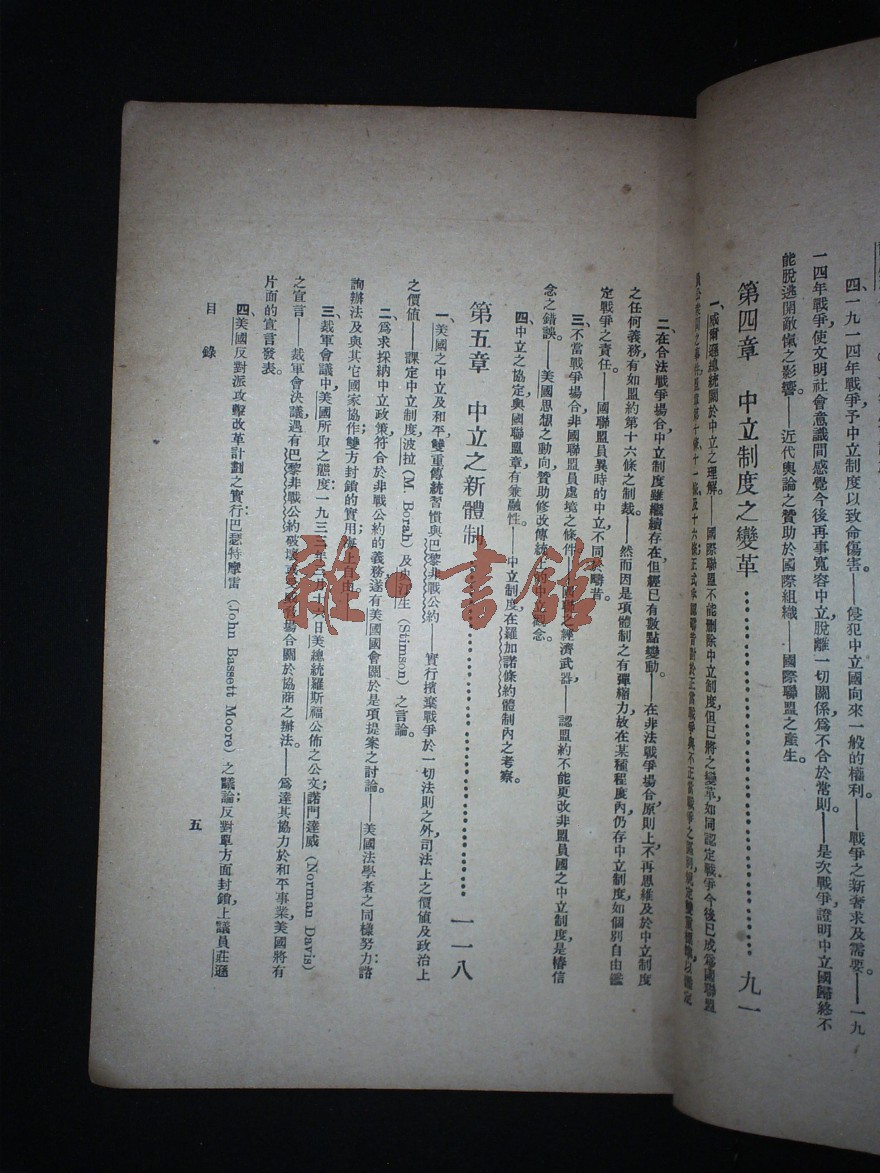 四、一九一四年戰爭予中立制度以致命傷害——侵犯中立國向來一般的權利——戰爭之新奢求及需要——一九
一四年戰爭使文明社會意識間感覺今後再事寬容中立，脫離一切關係爲不合於常則——是次戰爭證明中立國歸終不
能脫逃開敵愾之影響——近代輿論之贊助於國際組織——國際聯盟之產生。
第四章 中立制度之變革……九一
一、威爾遜總統關於中立之理解——國際聯盟不能刪除中立制度，但已將之變革，如同認定戰爭今後已成爲國聯盟
二、在合法戰爭場合，中立制度雖繼續存在，但經已有數點變動——在非法戰爭場合，原則上不再思維及於中立制度
之任何義務有如盟約第十六條之制裁——然而因是項體制之有彈縮力，放在某種程度內仍存中立制度，如個別自由鑑
定戰爭之責任——國聯盟員異時的中立不同於疇昔。
三、不當戰爭場合非國聯盟員處境之條件——國聯之經濟武器——認盟約不能更改非盟員國之中立制度是椿信
念之錯誤——美國思想之動向，贊助修改傳統上的中立觀念。
四、中立之協定與國聯盟章有兼融性。——中立制度，在羅加諾條約體制內之考察。
第五章 中立之新體制……一一八
一、美國之中立及和平，雙重傳統習慣與巴黎非戰公約——實行擯棄戰爭於一切法則之外，司法上之價值及政治上
之價値——課定中立制度，波拉（M. Borah）及史汀生（Stimson）之言論。
二、爲求採納中立政策符合於非戰公約的義務，遂有美國國會關於是項提案之討論。——美國法學者之同樣努力：諮
詢辦法及與其它國家協作雙方封鎖的實用，海上自由。
三、裁軍會議中，美國所取之態度：一九三三年五月十六日美總統羅斯福公佈之公文；諾門達威（Norman Davis）
之宣言——裁軍會決議，遇有巴黎非戰公約破壞場合關於協商之辦法。——爲達其協力於和平事業，美國將有
片面的宣言發表。
四、美國反對派攻擊改革計劃之實行，巴瑟特摩雷（John Bassett Moore）之議論，反對單方面封鎖，上議員莊遜
目錄
五
雜·書館